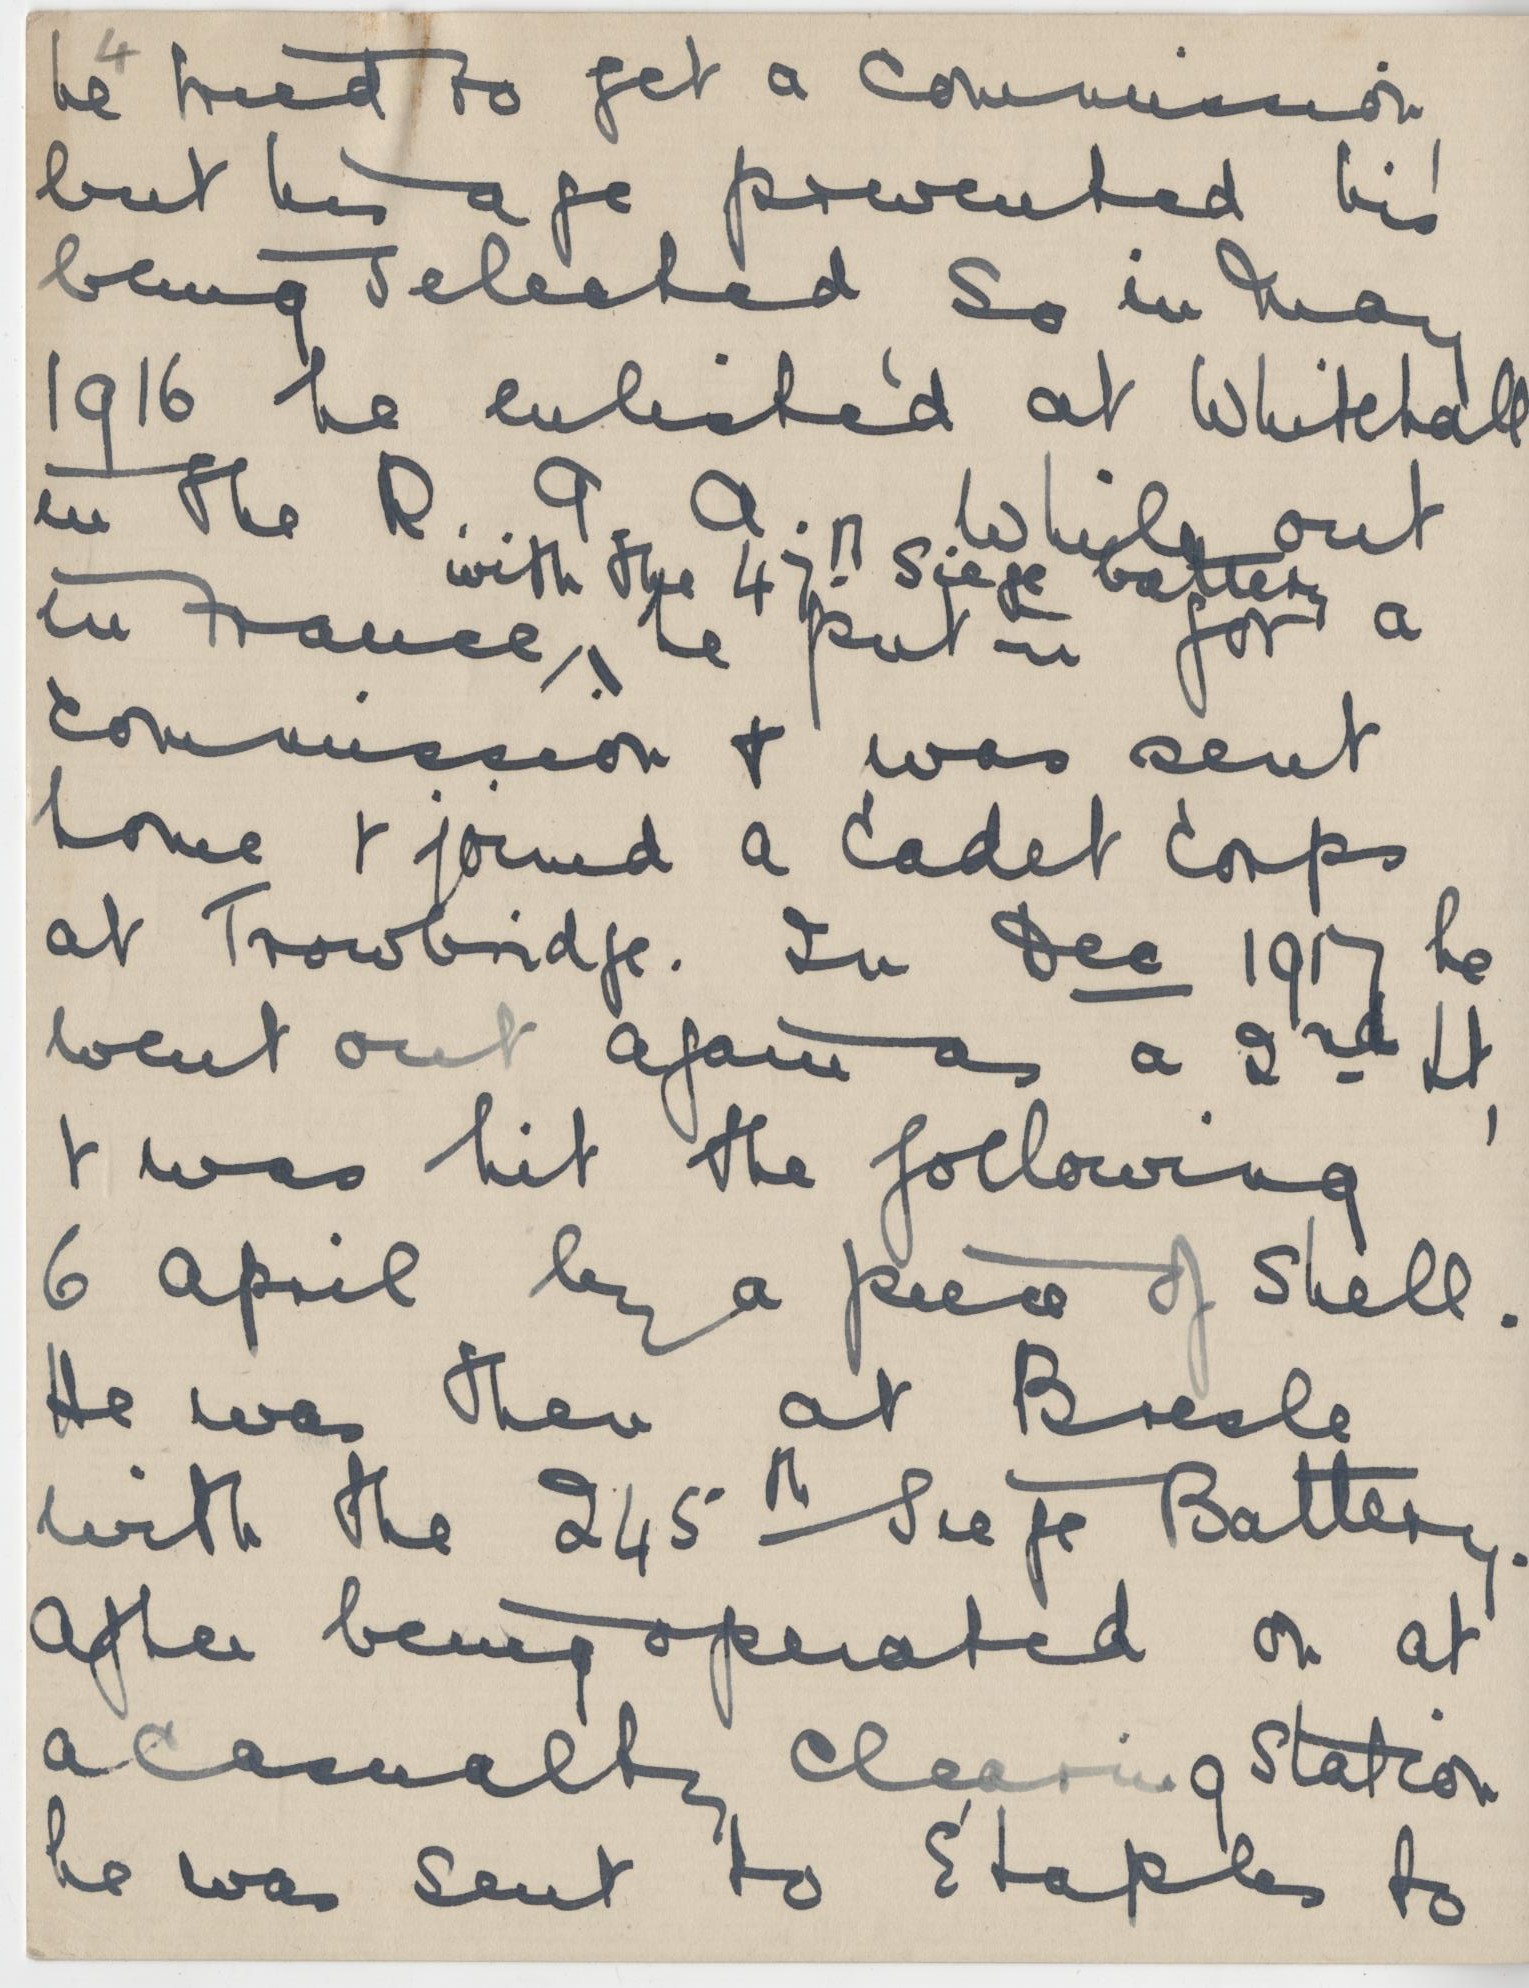 4
he tried to get a commission,
but his age prevented his
being selected So in May
1916 he enlisted at Whitehall
in the R. G. A. While out
with the 47th Siege battery
in France, ^ he put in for a
commission & was sent
home & joined a Cadet Corps
at Trowbridge. In Dec 1917 he
went out again as a 2nd Lt,
& was hit the following
6 April by a piece of Shell.
He was then at Bresle
with the 245th Siege Battery.
After being operated on at
a Casualty Clearing Station
he was sent to Étaples to